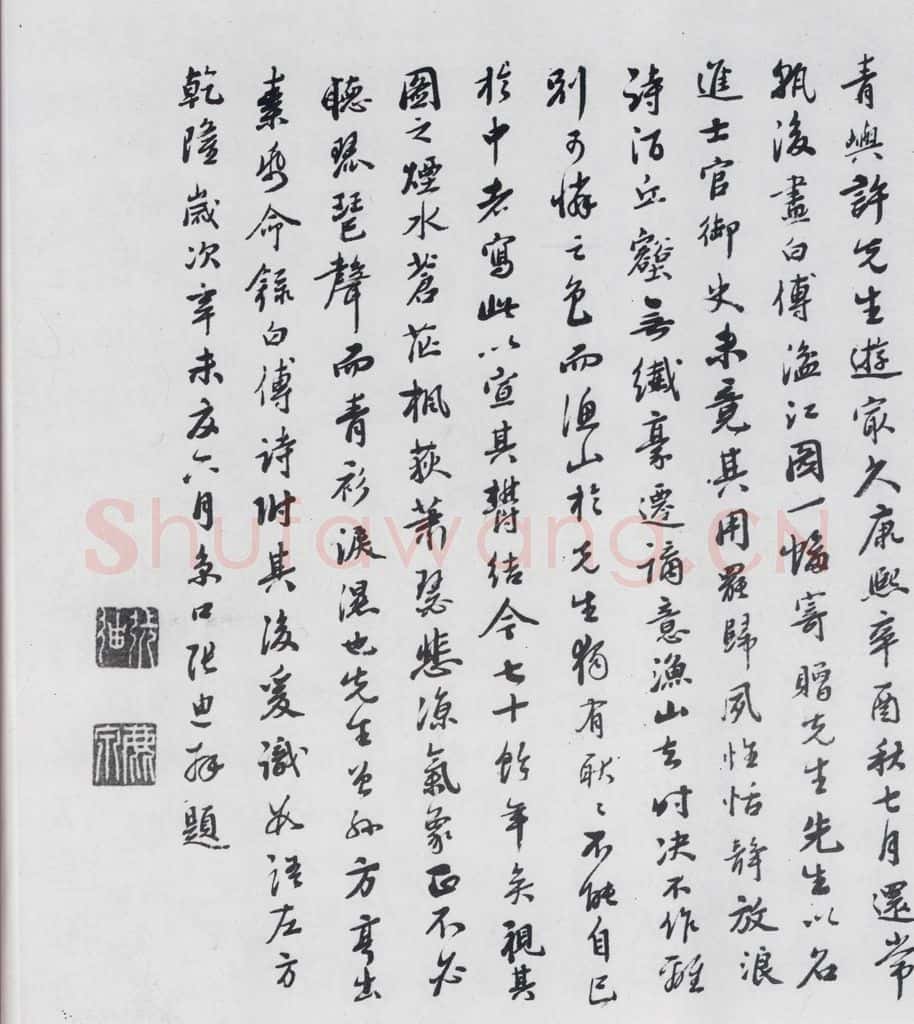 青嶼許先生遊最久康熙辛酉秋七月還常
熟後畫白傅湓江圖一幅寄贈先生先生以名
進士官御史未竟其用罷歸夙性恬靜放浪
詩酒丘壑無纖豪遷謫意漁山去時決不作離
別可憐之色而漁山於先生獨有耿〻不能自已
於中者寫此以宣其鬱結今七十餘年矣視其
圖之煙水蒼茫楓荻蕭瑟悲涼氣象正不必
聽琵琶聲而青衫淚濕也先生曾孫方亨出
素紙命錄白傅詩附其後爰識數語左方
乾隆歲次辛未夏六月京口張迪拜題
張迪
Shufawang.CN